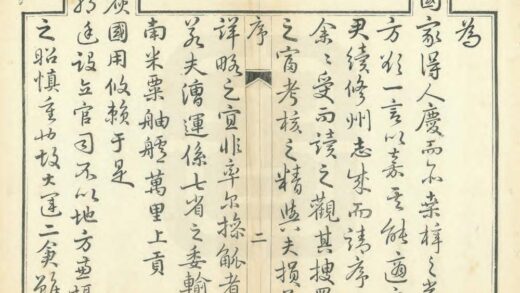 為
國家得人慶而尔桑梓之
方欲一言以嘉其能適
尹續修州志成而請序
余〻受而讀之觀其搜羅
之富考核之精與夫損
序 二
詳略之宜非率尔操觚者
若夫漕運係七省之委輸
南米粟舳艫萬里上貢
國用攸賴于是
廷設立官司不以地方
之昭慎重也故大運二